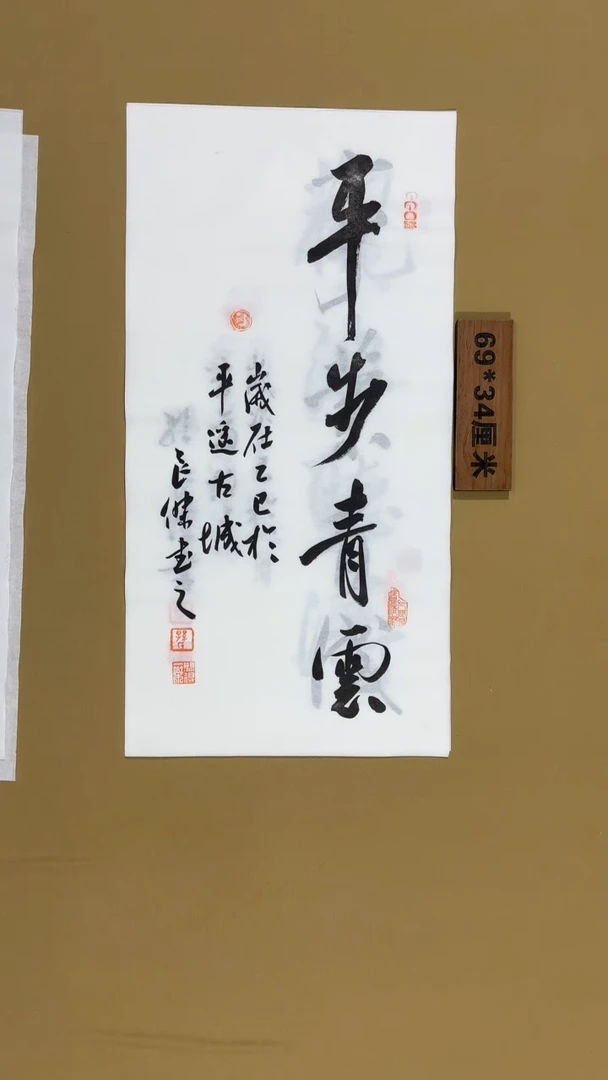 平步青雲
歲在乙巳於
平遥古城
良傑书之
69*34厘米